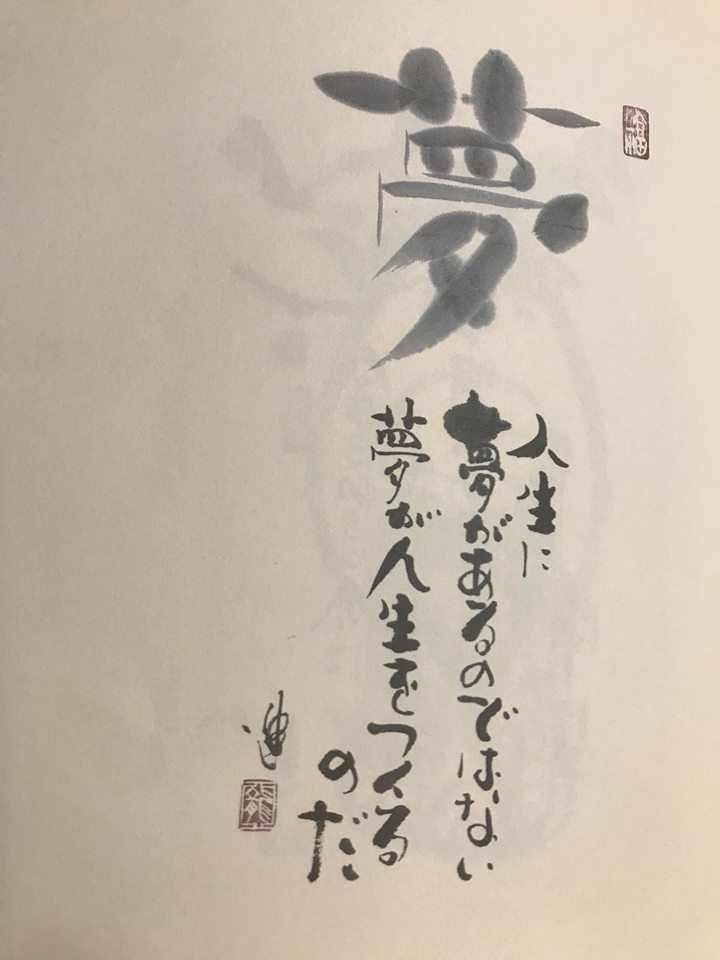 夢
人生に
夢があるのではない
夢が人生をつくる
のだ